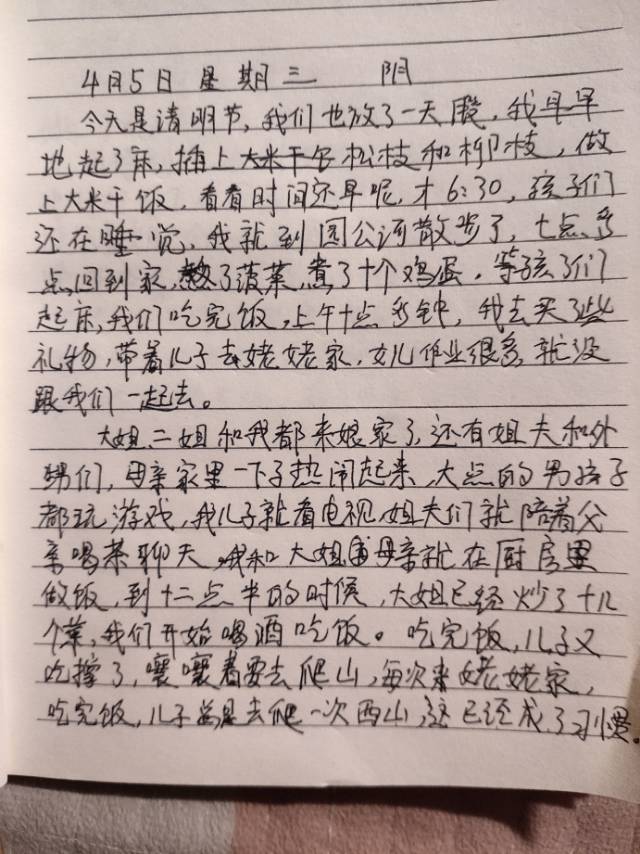 4月5日 星期三 阴
今天是清明节,我们也放了一天假,我早早
地起了床,插上松枝和柳枝,做
上大米干饭,看看时间还早呢,才6:30,孩子们
还在睡觉,我就到圆公河散步了,七点多
点回到家,了菠菜,煮了十个鸡蛋,等孩子们
起床,我们吃完饭,上午十点多钟,我去买了些
礼物,带着儿子去姥姥家,女儿作业很多,就没
跟我们一起去。
大姐、二姐和我都来娘家了,还有姐夫和外
甥们,母亲家里一下子热闹起来,大点的男孩子
都玩游戏,我儿子就看电视,姐夫们就陪着父
亲喝茶聊天,我和大姐母亲就在厨房里
做饭,到十二点半的时候,大姐已经炒了十几
个菜,我们开始喝酒吃饭。吃完饭,儿子又
吃撑了,嚷嚷着要去爬山,每次来姥姥家,
吃完饭,儿子总是去爬一次西山,这已经成了习惯。